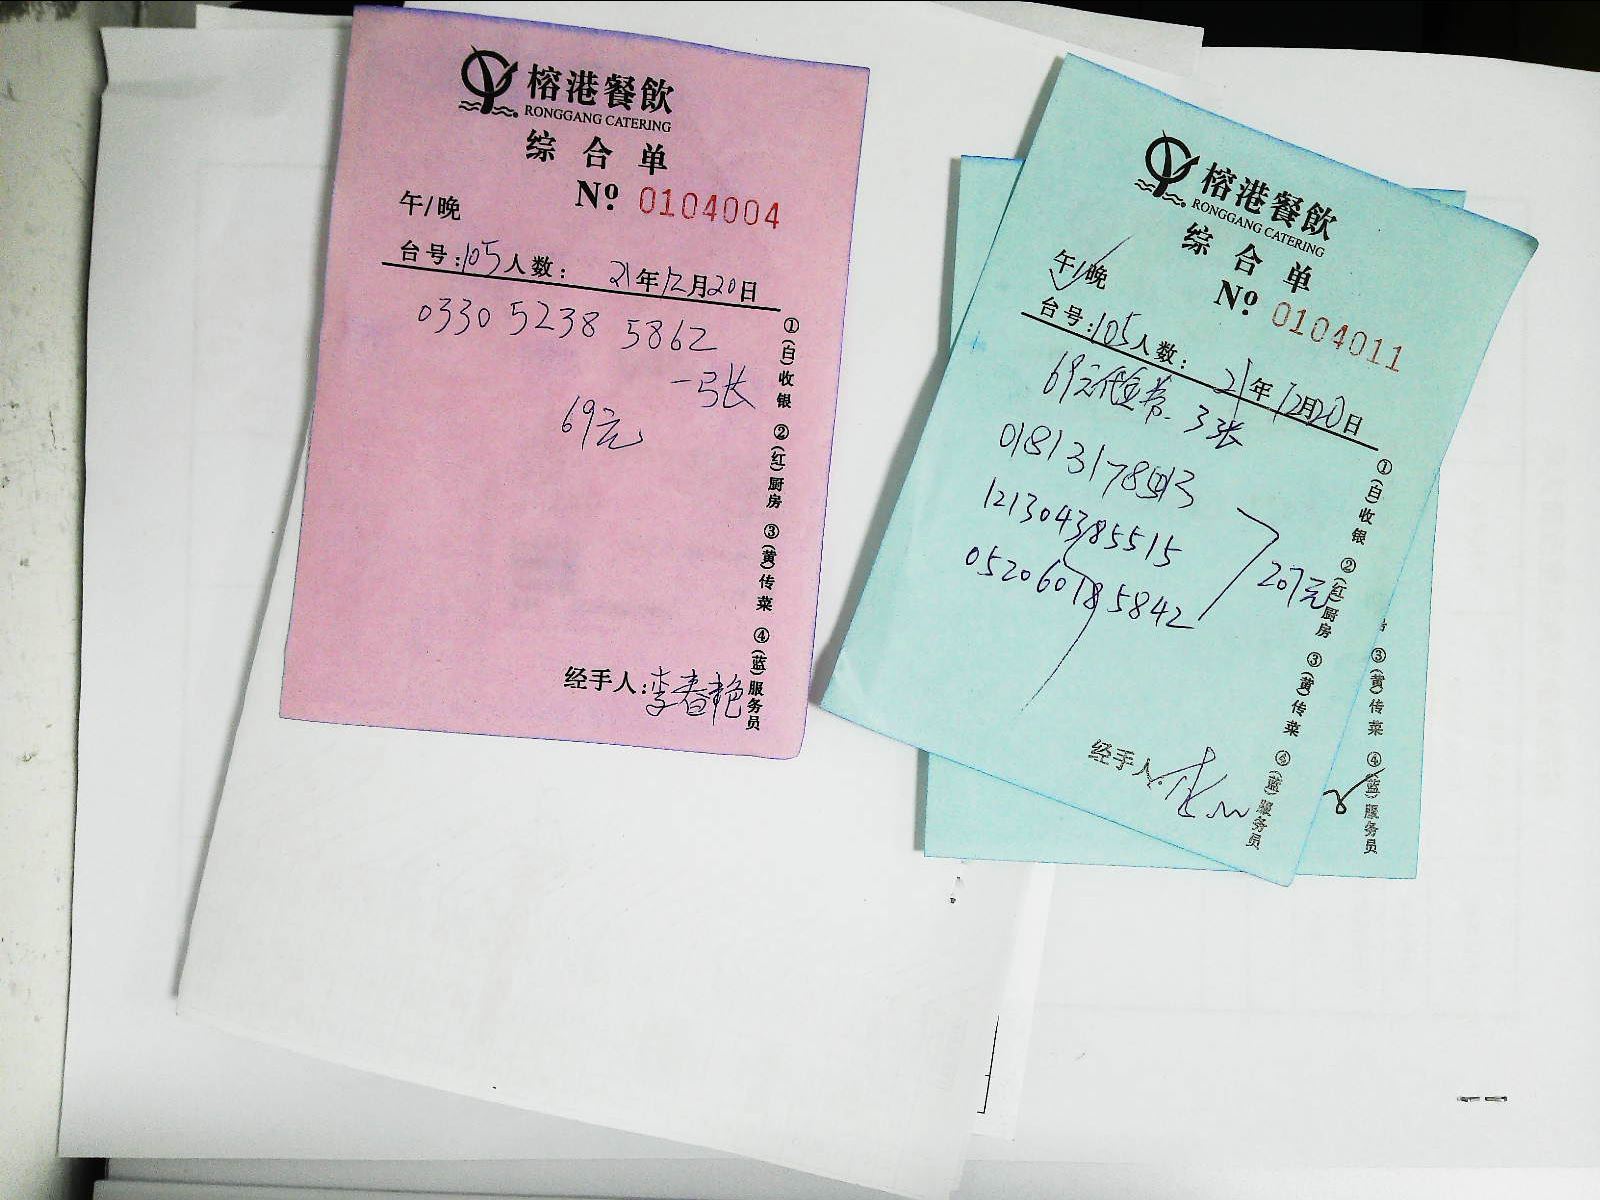 榕港餐飲
RONGGANG CATERING
综合单
Nº 0104004
午/晚
台号:105人数: 21年12月20日
0330 5238 5862
一张
69元
①(白)收银 ②(红)厨房 ③(黄)传菜 ④(蓝)服务员
经手人:李春艳
榕港餐飲
RONGGANG CATERING
综合单
Nº 0104011
午/晚
台号:105人数: 21年12月20日
69元代金券 3张
018131785
121304385515
052060185842
207元
①(白)收银 ②(红)厨房 ③(黄)传菜 ④(蓝)服务员
经手人:
③(黄)传菜 ④(蓝)服务员